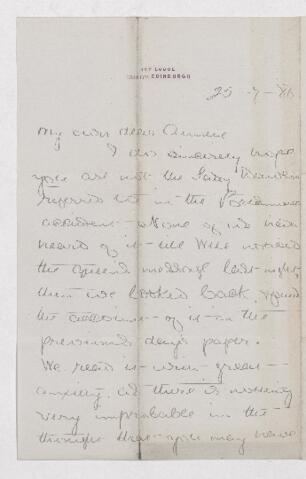 LODGE
EDINBURGH
25-7-86
My own dear Annie
I do sincerely hope
you are not the Lady
referred to in the
accident - None of us had
heard of it - till Willie noticed
the Queen's message last night
then we looked back & found
the account - of it - in the
previous day's paper.
We read it - with great -
anxiety, as there is nothing
very improbable in the -
thought that - you may have